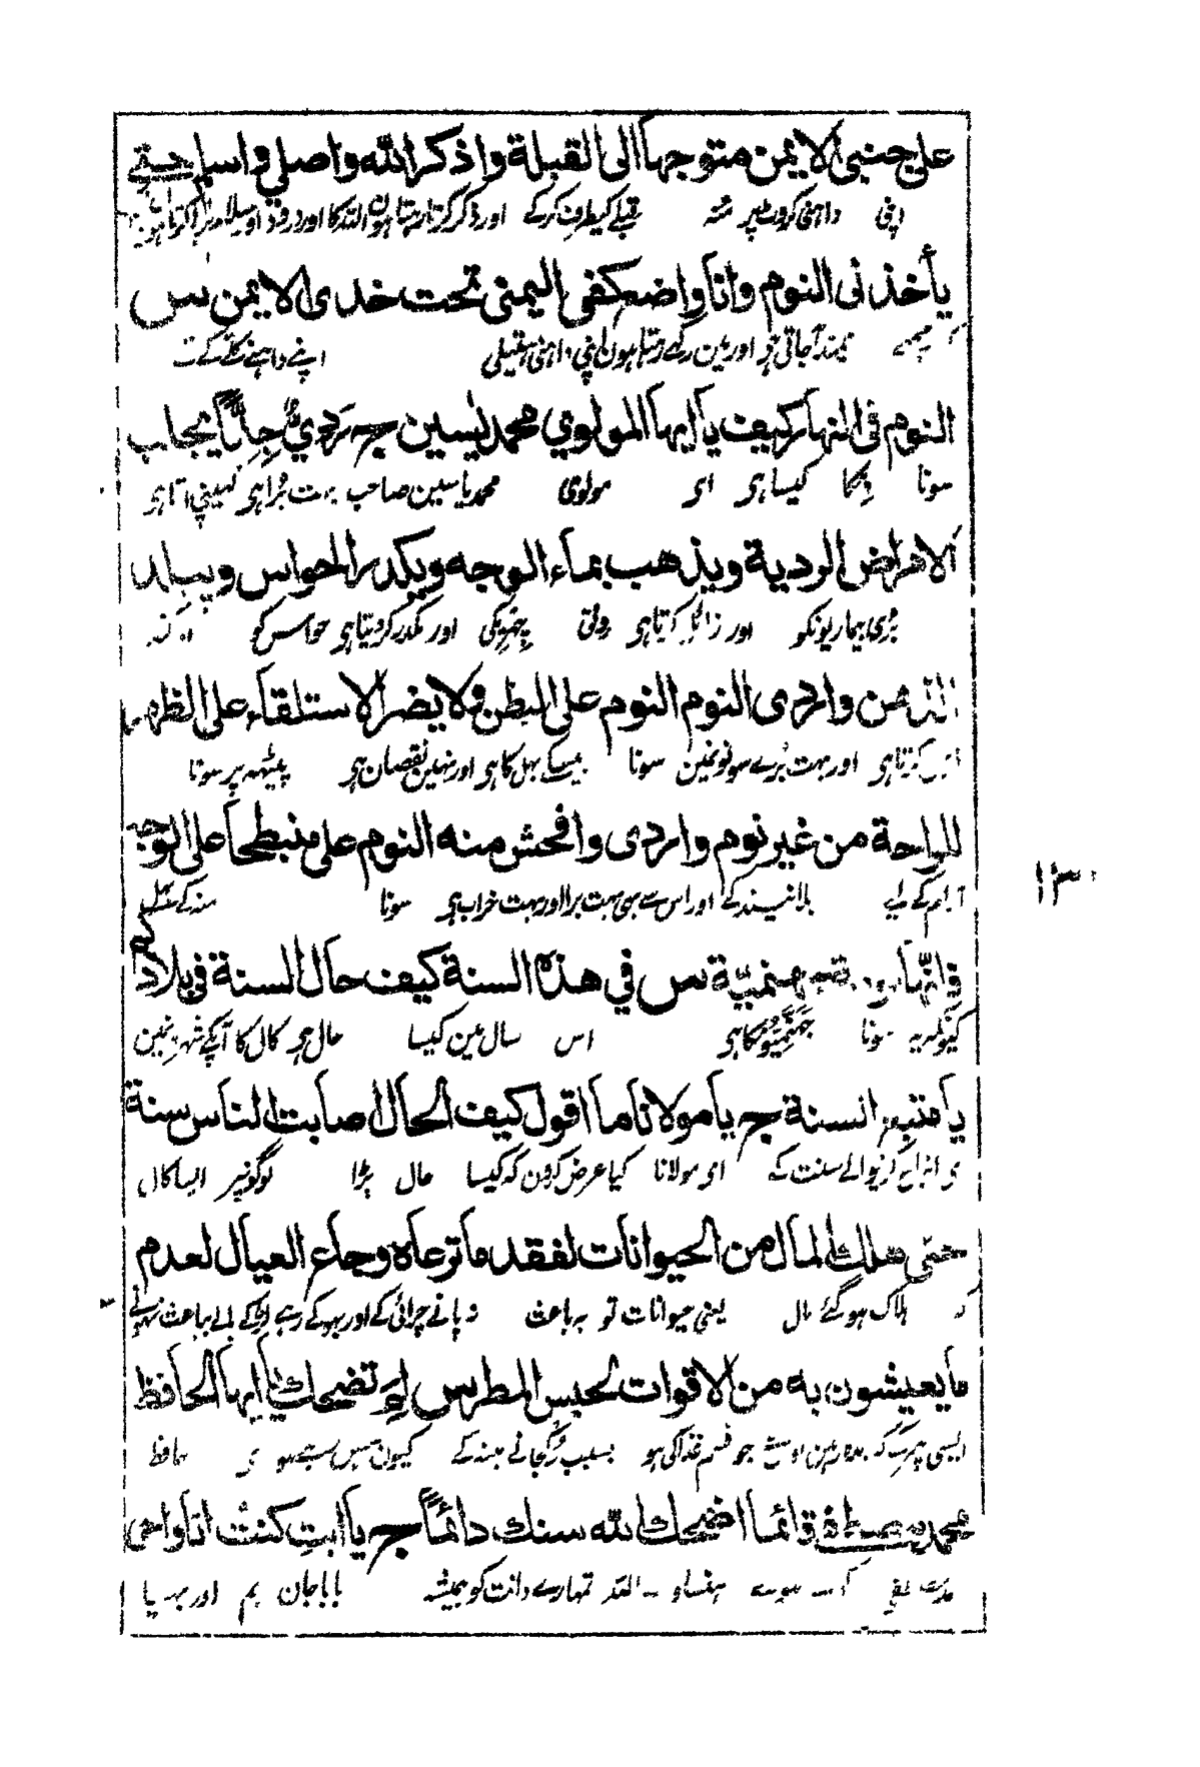 على جنبى الايمن متوجها الى القبلة واذكر الله واصلي واسلم حتى
اپنی داہنی کروٹ پر منہ قبلے کیطرف کرکے اور ذکر کرتا رہتا ہوں اللہ کا اور درود اور سلام
يأخذنى النوم وانا واضع كفى اليمنى تحت خدى الايمن س
نیند آجاتی ہی اور مین رکھے رہتا ہون اپنی داہنی ہتھیلی اپنے داہنے کلے کے
النوم فى النهار كيف يا ايها المولوي محمد يٰسين ج ردي جداً يجلب
سونا دنکا کیسا ہی ای مولوی محمد یاسین صاحب بہت بُرا ہی کھینچ لاتا ہی
الامراض الردية ويذهب بماء الوجه ويكدر الحواس ويبلد
بُری بیماریونکو اور زائل کرتا ہی رونق چہرہکی اور مکدر کردیتا ہی حواس کو اور کند
الذهن واردى النوم النوم على البطن ولا يضر الاستلقاء على الظهر
ذہن کرتا ہی اور بہت بُرے سونونمین سونا پیٹ کے بہل کا ہی اور نہین نقصان ہی پیٹہہ پر سونا
للراحة من غير نوم واردى وافحش منه النوم على منبطحا على الوجه
آرام کے لیے بلا نیند کے اور اس سے بھی بہت برا اور بہت خراب ہی سونا منہ کے بہل
فانها نومة جهنمية س في هذه السنة كيف حال السنة في بلادكم
کیونکہ یہ سونا جہنمیونکا ہی اس سال مین کیسا حال ہی کال کا آپکے شہرونمین
يا متبع السنة ج يا مولانا ما اقول كيف الحال اصابت الناس سنة
ای اتباع کرنیوالے سنت کے ای مولانا کیا عرض کرون کہ کیسا حال پڑا لوگونپر ایسا کال
حتى هلك المال من الحيوانات لفقد ما ترعاه وجاع العيال لعدم
کہ ہلاک ہوگئے مال یعنی حیوانات تو بہ باعث نہ پانے چرائی کے اور بہوکے رہے لڑکے بالے بباعث نہونے
ما يعيشون به من الاقوات لحبس المطر س لم تضحك يا ايها الحافظ
ایسی چیز کے جو قسم غذا کی ہو بسبب رُک جانے مینہ کے کیون ہنس رہے ہو ای حافظ
محمد مصطفى قائما اضحك الله سنك دائماً ج يا ابت كنت انا واخى
کہڑے ہوے ہنساو اللہ تمہارے دانت کو ہمیشہ باباجان ہم اور بہیا
١٣٠